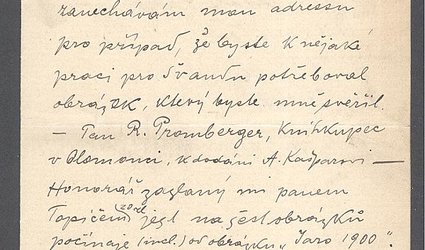 zanechávám mou adressu
pro případ, že byste k nějaké
práci pro Švandu potřeboval
obrázek, který byste mně svěřil.
— Pan R. Promberger, knihkupec
v Olomouci, k dodání A. Kašparovi —
Honorář zaslaný mi panem
Topičem 20 zl jest na šest obrázků
počínaje (incl.) od obrázku „Jaro 1900".